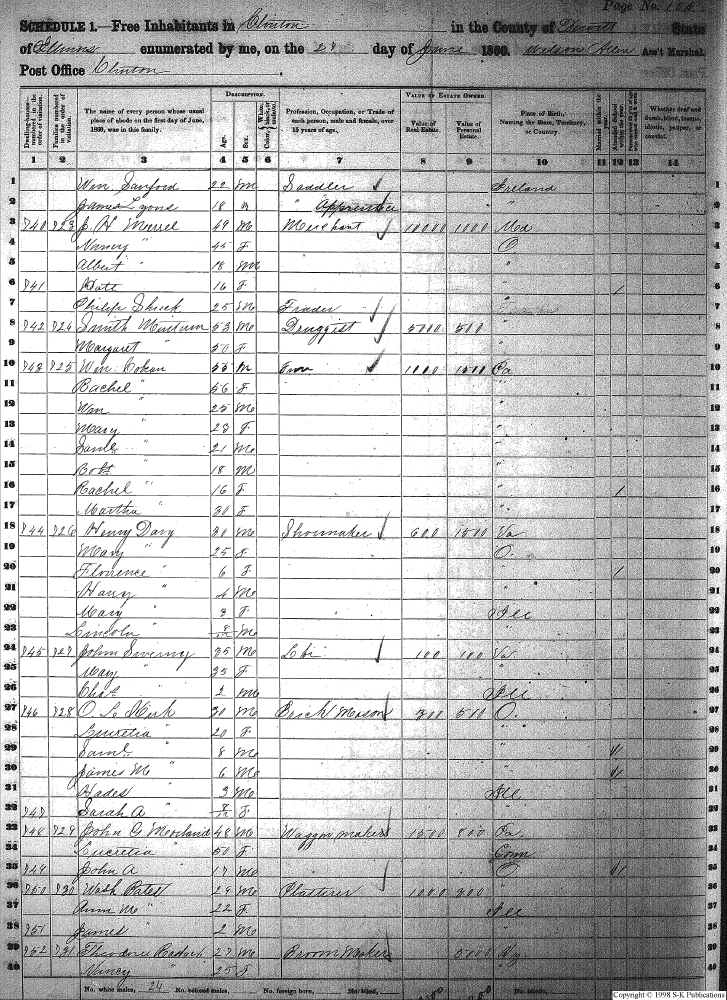 Page No. 104
SCHEDULE 1.—Free Inhabitants in Clinton in the County of Dewitt State
of Illinois enumerated by me, on the 28 day of June 1860. Wilson Allen Ass't Marshal.
Post Office Clinton
Dwelling-houses—numbered in the order of visitation.
Families numbered in the order of visitation.
The name of every person whose usual place of abode on the first day of June, 1860, was in this family.
DESCRIPTION.
Age.
Sex.
Color, White, black, or mulatto.
Profession, Occupation, or Trade of each person, male and female, over 15 years of age.
VALUE OF ESTATE OWNED.
Value of Real Estate.
Value of Personal Estate.
Place of Birth, Naming the State, Territory, or Country.
Married within the year.
Attended School within the year.
Whether deaf and dumb, blind, insane, idiotic, pauper, or convict.
1 2 3 4 5 6 7 8 9 10 11 12 13 14
1 Wm Sanford 22 M Saddler Ireland 1
2 James Lyons 18 " Apprentice " 2
3 740 723 J. H. Merrel 49 M Merchant 10000 1000 3
4 Nancy " 45 F O 4
5 Albert " 18 M " 5
6 741 Kate 16 F " / 6
7 Philip Shick 25 M Trader 7
8 742 724 Smith Minturn 53 M Druggist 5000 500 " 8
9 Margaret " 50 F " 9
10 743 725 Wm 55 M 1000 1500 Pa 10
11 Rachel " 56 F " 11
12 Wm " 25 M " 12
13 Mary " 23 F " 13
14 Saml " 21 M " 14
15 Robt " 18 M " 15
16 Rachel " 16 F " / 16
17 Martha " 30 F " 17
18 744 726 Henry Davy 30 M Shoemaker 600 1500 Va 18
19 Mary " 25 F O. 19
20 Florence " 6 F " / 20
21 Harry " 4 M " 21
22 Mary " 3 F Ill 22
23 Lincoln " M " 23
24 745 727 John 35 M 100 100 Va 24
25 Mary " 35 F " 25
26 Chas. " 2 M Ill 26
27 746 728 O. S. Kirk 30 M Brick Mason 300 500 O. 27
28 Lucretia " 20 F " 28
29 Saml " 8 M " / 29
30 James M " 6 M " / 30
31 Hades " 3 M Ill 31
32 747 Sarah A " F " 32
33 748 729 John G Moreland 48 M Waggon maker 1500 800 Pa. 33
34 Lucretia " 50 F Conn 34
35 749 John A " 17 M O / 35
36 750 730 Wash Bates 29 M Plasterer 1000 300 " 36
37 Ann M " 22 F Ill 37
38 751 James " 2 M " 38
39 752 731 Theodore 27 M Broom Maker 5000 Ny 39
40 Nancy " 25 F " 40
No. white males, 24 No. colored males, No. foreign born, No. blind, No. idiotic,
Copyright © 1998 S-K Publications